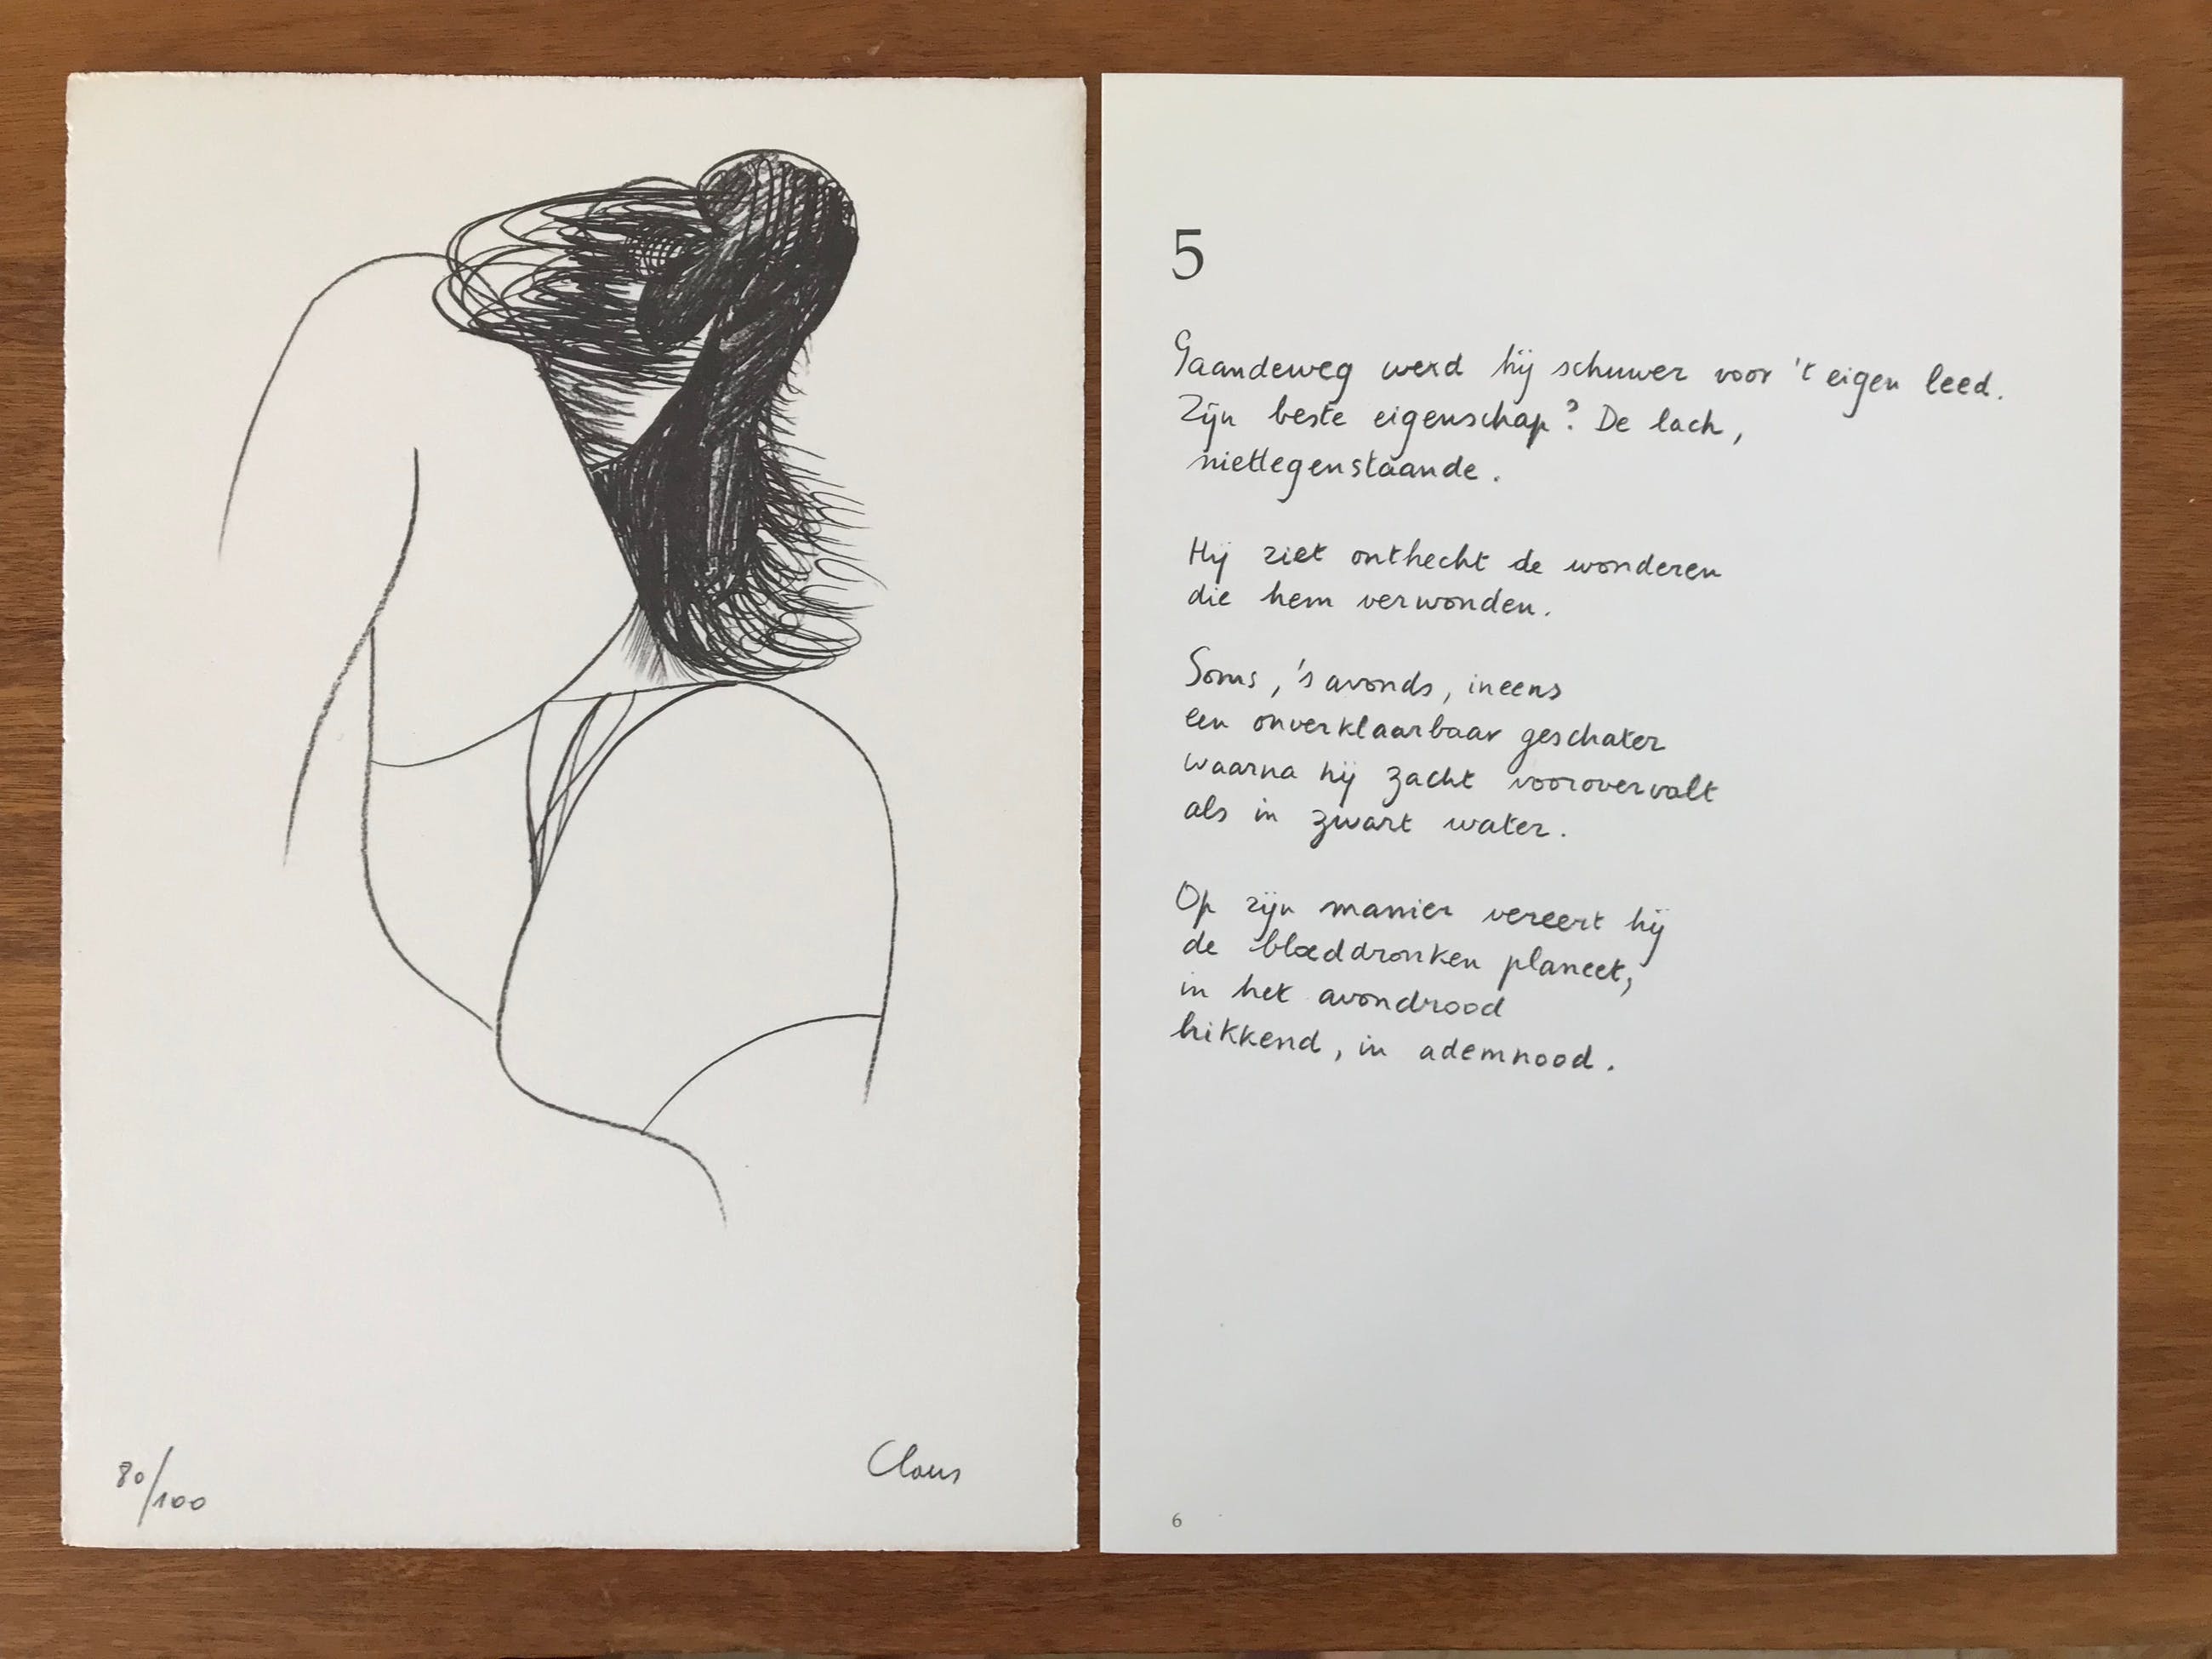 80/100
Claus
5
Gaandeweg werd hij schuwer voor 't eigen leed.
Zijn beste eigenschap? De lach,
niettegenstaande.
Hij ziet onthecht de wonderen
die hem verwonden.
Soms, 's avonds, ineens
een onverklaarbaar geschater
waarna hij zacht voorovervalt
als in zwart water.
Op zijn manier vereert hij
de bloeddronken planeet,
in het avondrood
hikkend, in ademnood.
6